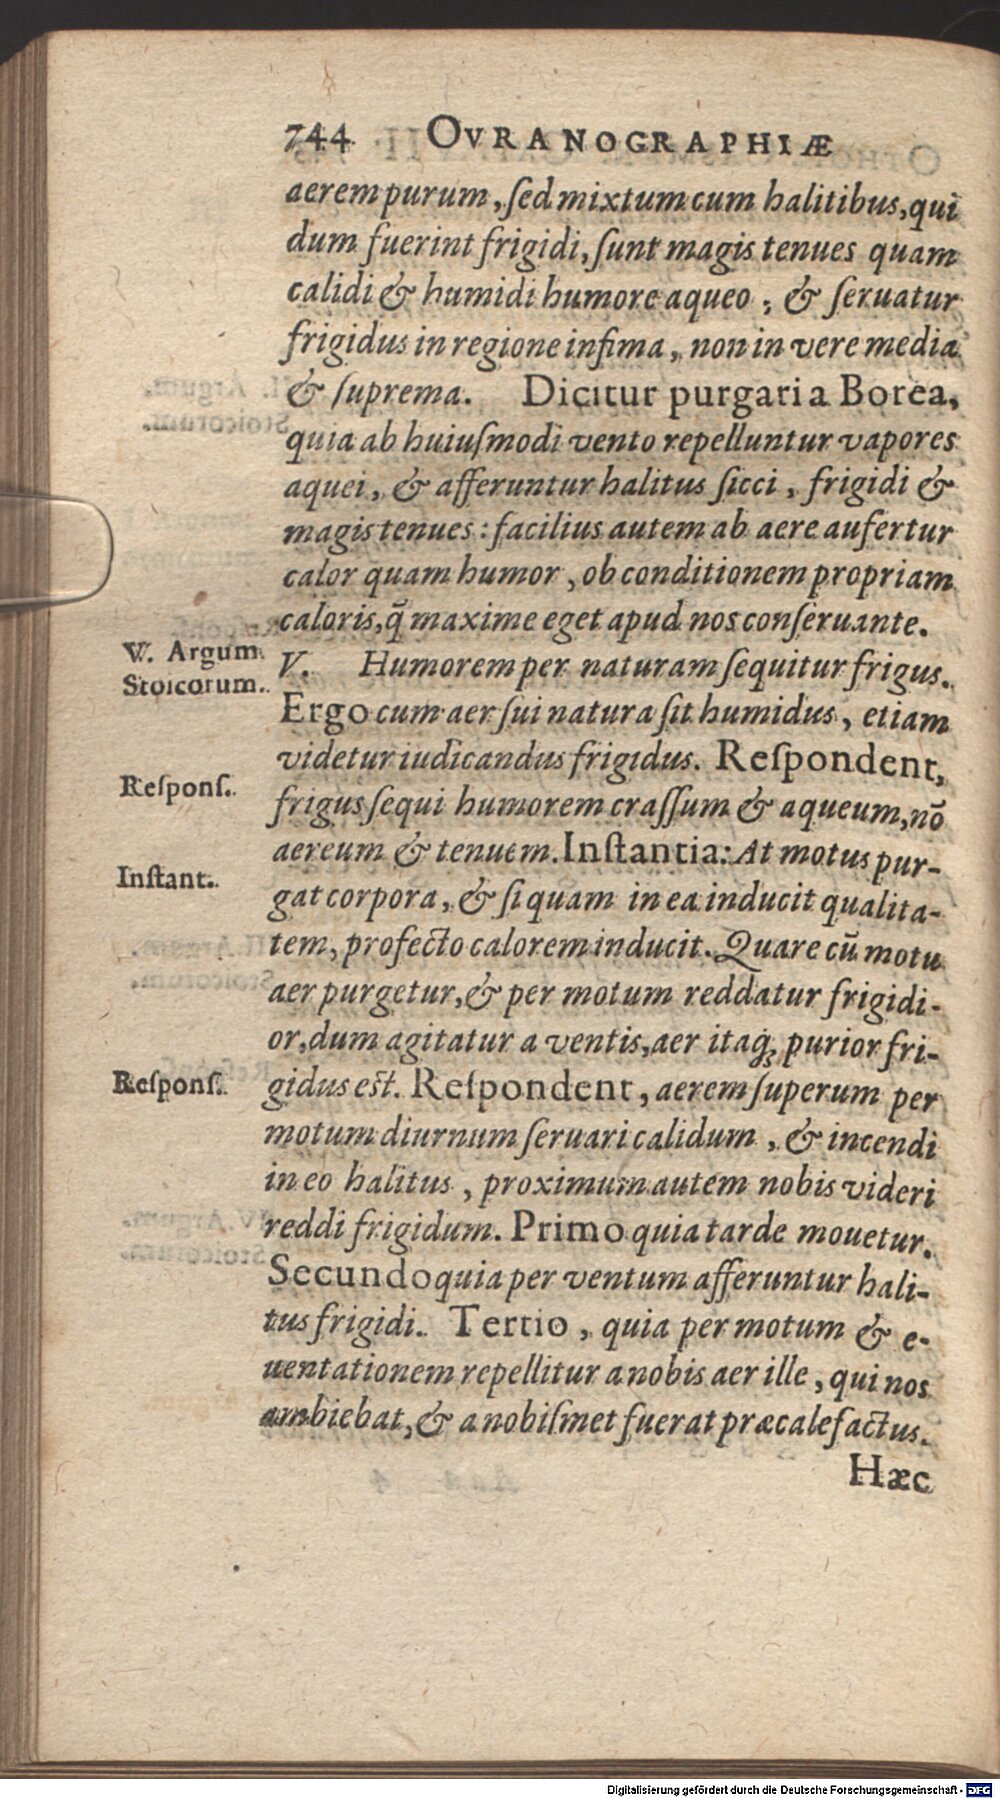 744 OVRANOGRAPHIÆ
aerem purum, ſed mixtum cum halitibus, qui
dum fuerint frigidi, ſunt magis tenues quam
calidi & humidi humore aqueo, & ſeruatur
frigidus in regione infima, non in vere media
& ſuprema. Dicitur purgari a Borea,
quia ab huiuſmodi vento repelluntur vapores
aquei, & afferuntur halitus ſicci, frigidi &
magis tenues: facilius autem ab aere aufertur
calor quam humor, ob conditionem propriam
caloris, q̃ maxime eget apud nos conſeruante.
V. Argum.
Stoicorum.
V. Humorem per naturam ſequitur frigus.
Ergo cum aer ſui natura ſit humidus, etiam
videtur iudicandus frigidus. Reſpondent,
Reſponſ.
frigus ſequi humorem craſſum & aqueum, nō
aereum & tenuem. Inſtantia: At motus pur-
Inſtant.
gat corpora, & ſi quam in ea inducit qualita-
tem, profecto calorem inducit. Quare cū motu
aer purgetur, & per motum reddatur frigidi-
or, dum agitatur a ventis, aer itaq; purior fri-
Reſponſ.
gidus est. Reſpondent, aerem ſuperum per
motum diurnum ſeruari calidum, & incendi
in eo halitus, proximum autem nobis videri
reddi frigidum. Primo quia tarde mouetur.
Secundo quia per ventum afferuntur hali-
tus frigidi. Tertio, quia per motum & e-
uentationem repellitur a nobis aer ille, qui nos
ambiebat, & a nobiſmet fuerat præcalefactus.
Hæc
Digitalisierung gefördert durch die Deutsche Forschungsgemeinschaft - DFG